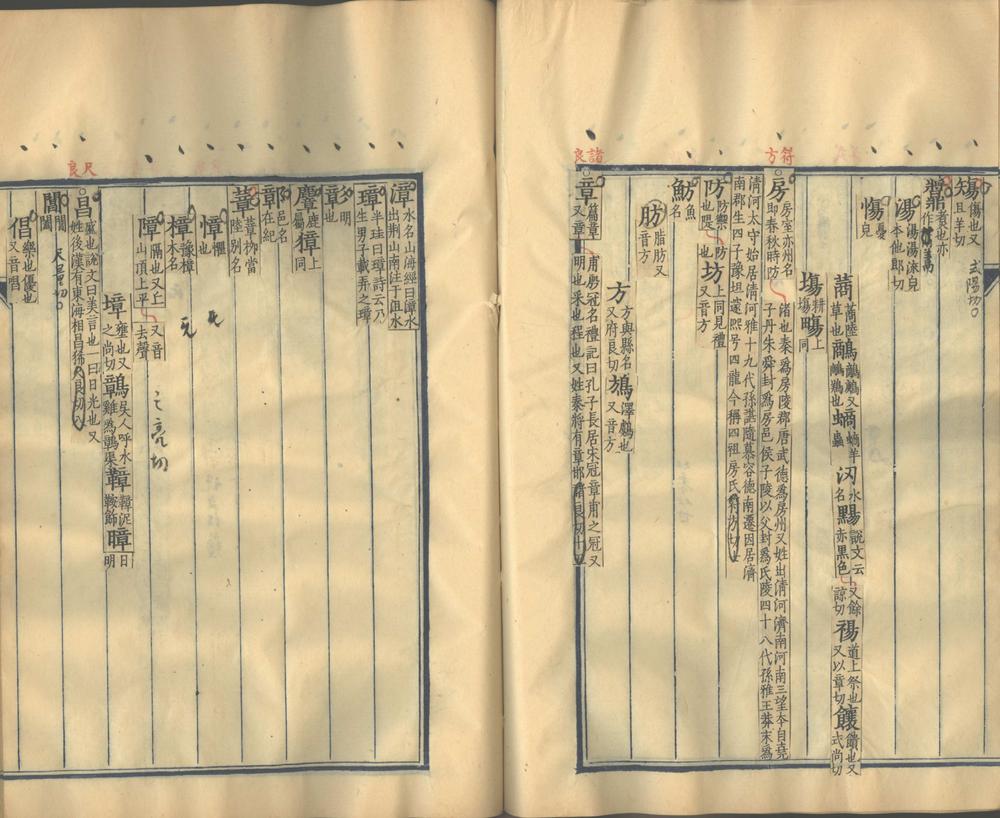 傷也又式陽切
且羊切
鬺煑也亦作
湯湯湯流皃本他郎切
慯憂皃
蔏蔏陸草也鸘鸘又螪螪羊蟲
汤水名
黷說文云赤黑色又餘諒切禓道上祭也又以章切饟饋也又式尚切
塲耕塲暘上同
符方
房房室亦州名即春秋時防渚也秦爲房陵郡唐武德爲房州又姓出清河濟南河南三望本自堯子丹朱舜封爲房邑侯子陵以父封爲氏陵四十八代孫雅王莽末爲
清河太守始居清河雅十九代孫諶隨慕容德南遷因居濟南郡生四子豫坦邃熙号四龍今稱四祖房氏符方切七
防防禦也隄也防坊上同見禮又音方
魴魚名
肪脂肪又音方
方方與縣名又府良切鴋澤鸆也又音方
諸良
章篇章又章明也采也程也又姓秦將有章邯諸良切十五甫殷冠名禮記曰孔子長居宋冠章甫之冠又
漳水名山海經曰漳水出荆山南注于沮水
璋半珪曰璋詩云乃生男子載弄之璋
彰明也彰
麞鹿屬獐上同
鄣邑名在紀
蔁蔁柳當陸別名
慞懼也
樟豫樟木名
障隔也又山頂上平又音去聲
之亮切
墇壅也又之尚切鷾吳人呼水雞爲鷾渠鞾鞾泥鞍飾暲日明
尺良
昌盛也說文曰美言也一曰日光也又姓後漢有東海相昌豨尺良切八
閶閶闔
尺量切
倡樂也優也又音唱